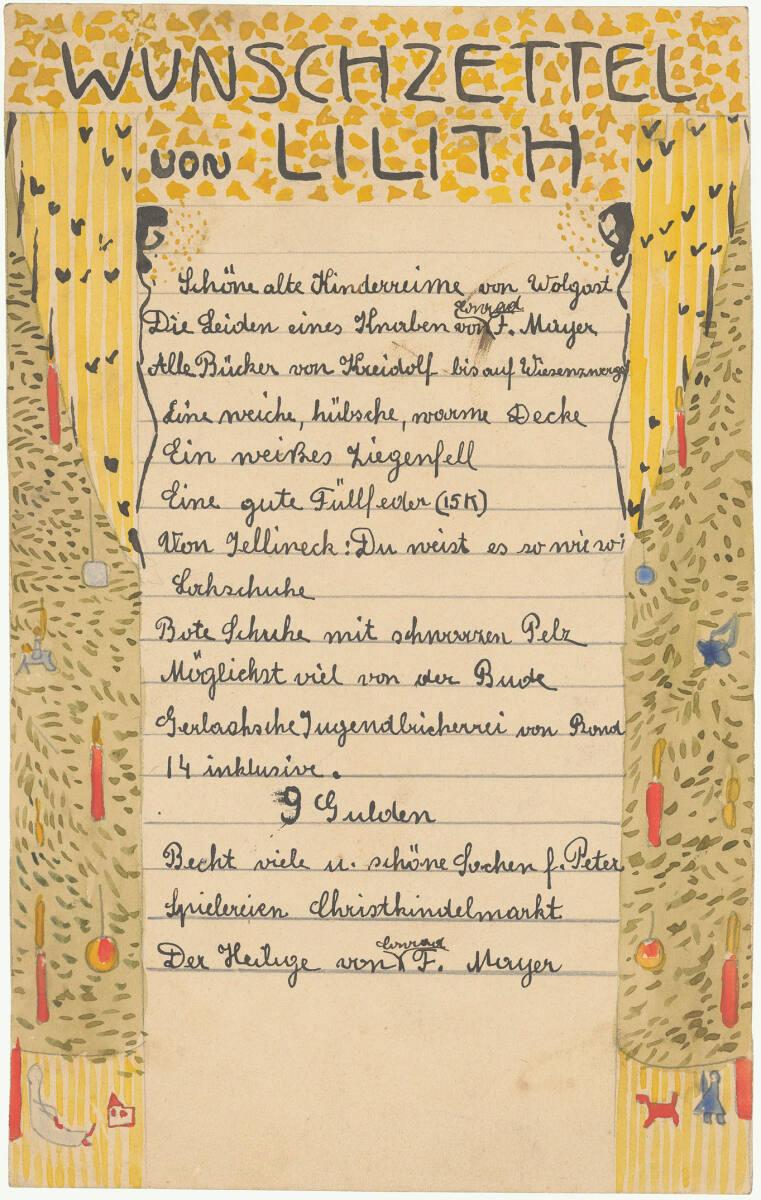 WUNSCHZETTEL
VON LILITH
Schöne alte Kinderreime von Wolgast
Conrad
Die Leiden eines Knaben von F. Mayer
Alle Bücker von Kreidolf bis auf Wiesenzwerge
Eine weiche, hübsche, warme Decke
Ein weißes Ziegenfell
Eine gute Füllfeder (15K)
Von Jellineck: Du weist es so wie wi
Lakschuhe
Rote Schuhe mit schwarzen Pelz
Möglichst viel von der Bude
Gerlachsche Jugendbücherrei von Band
14 inklusive.
9 Gulden
Recht viele u. schöne Sachen f. Peter
Spielereien Christkindelmarkt
Conrad
Der Heilige von F. Mayer